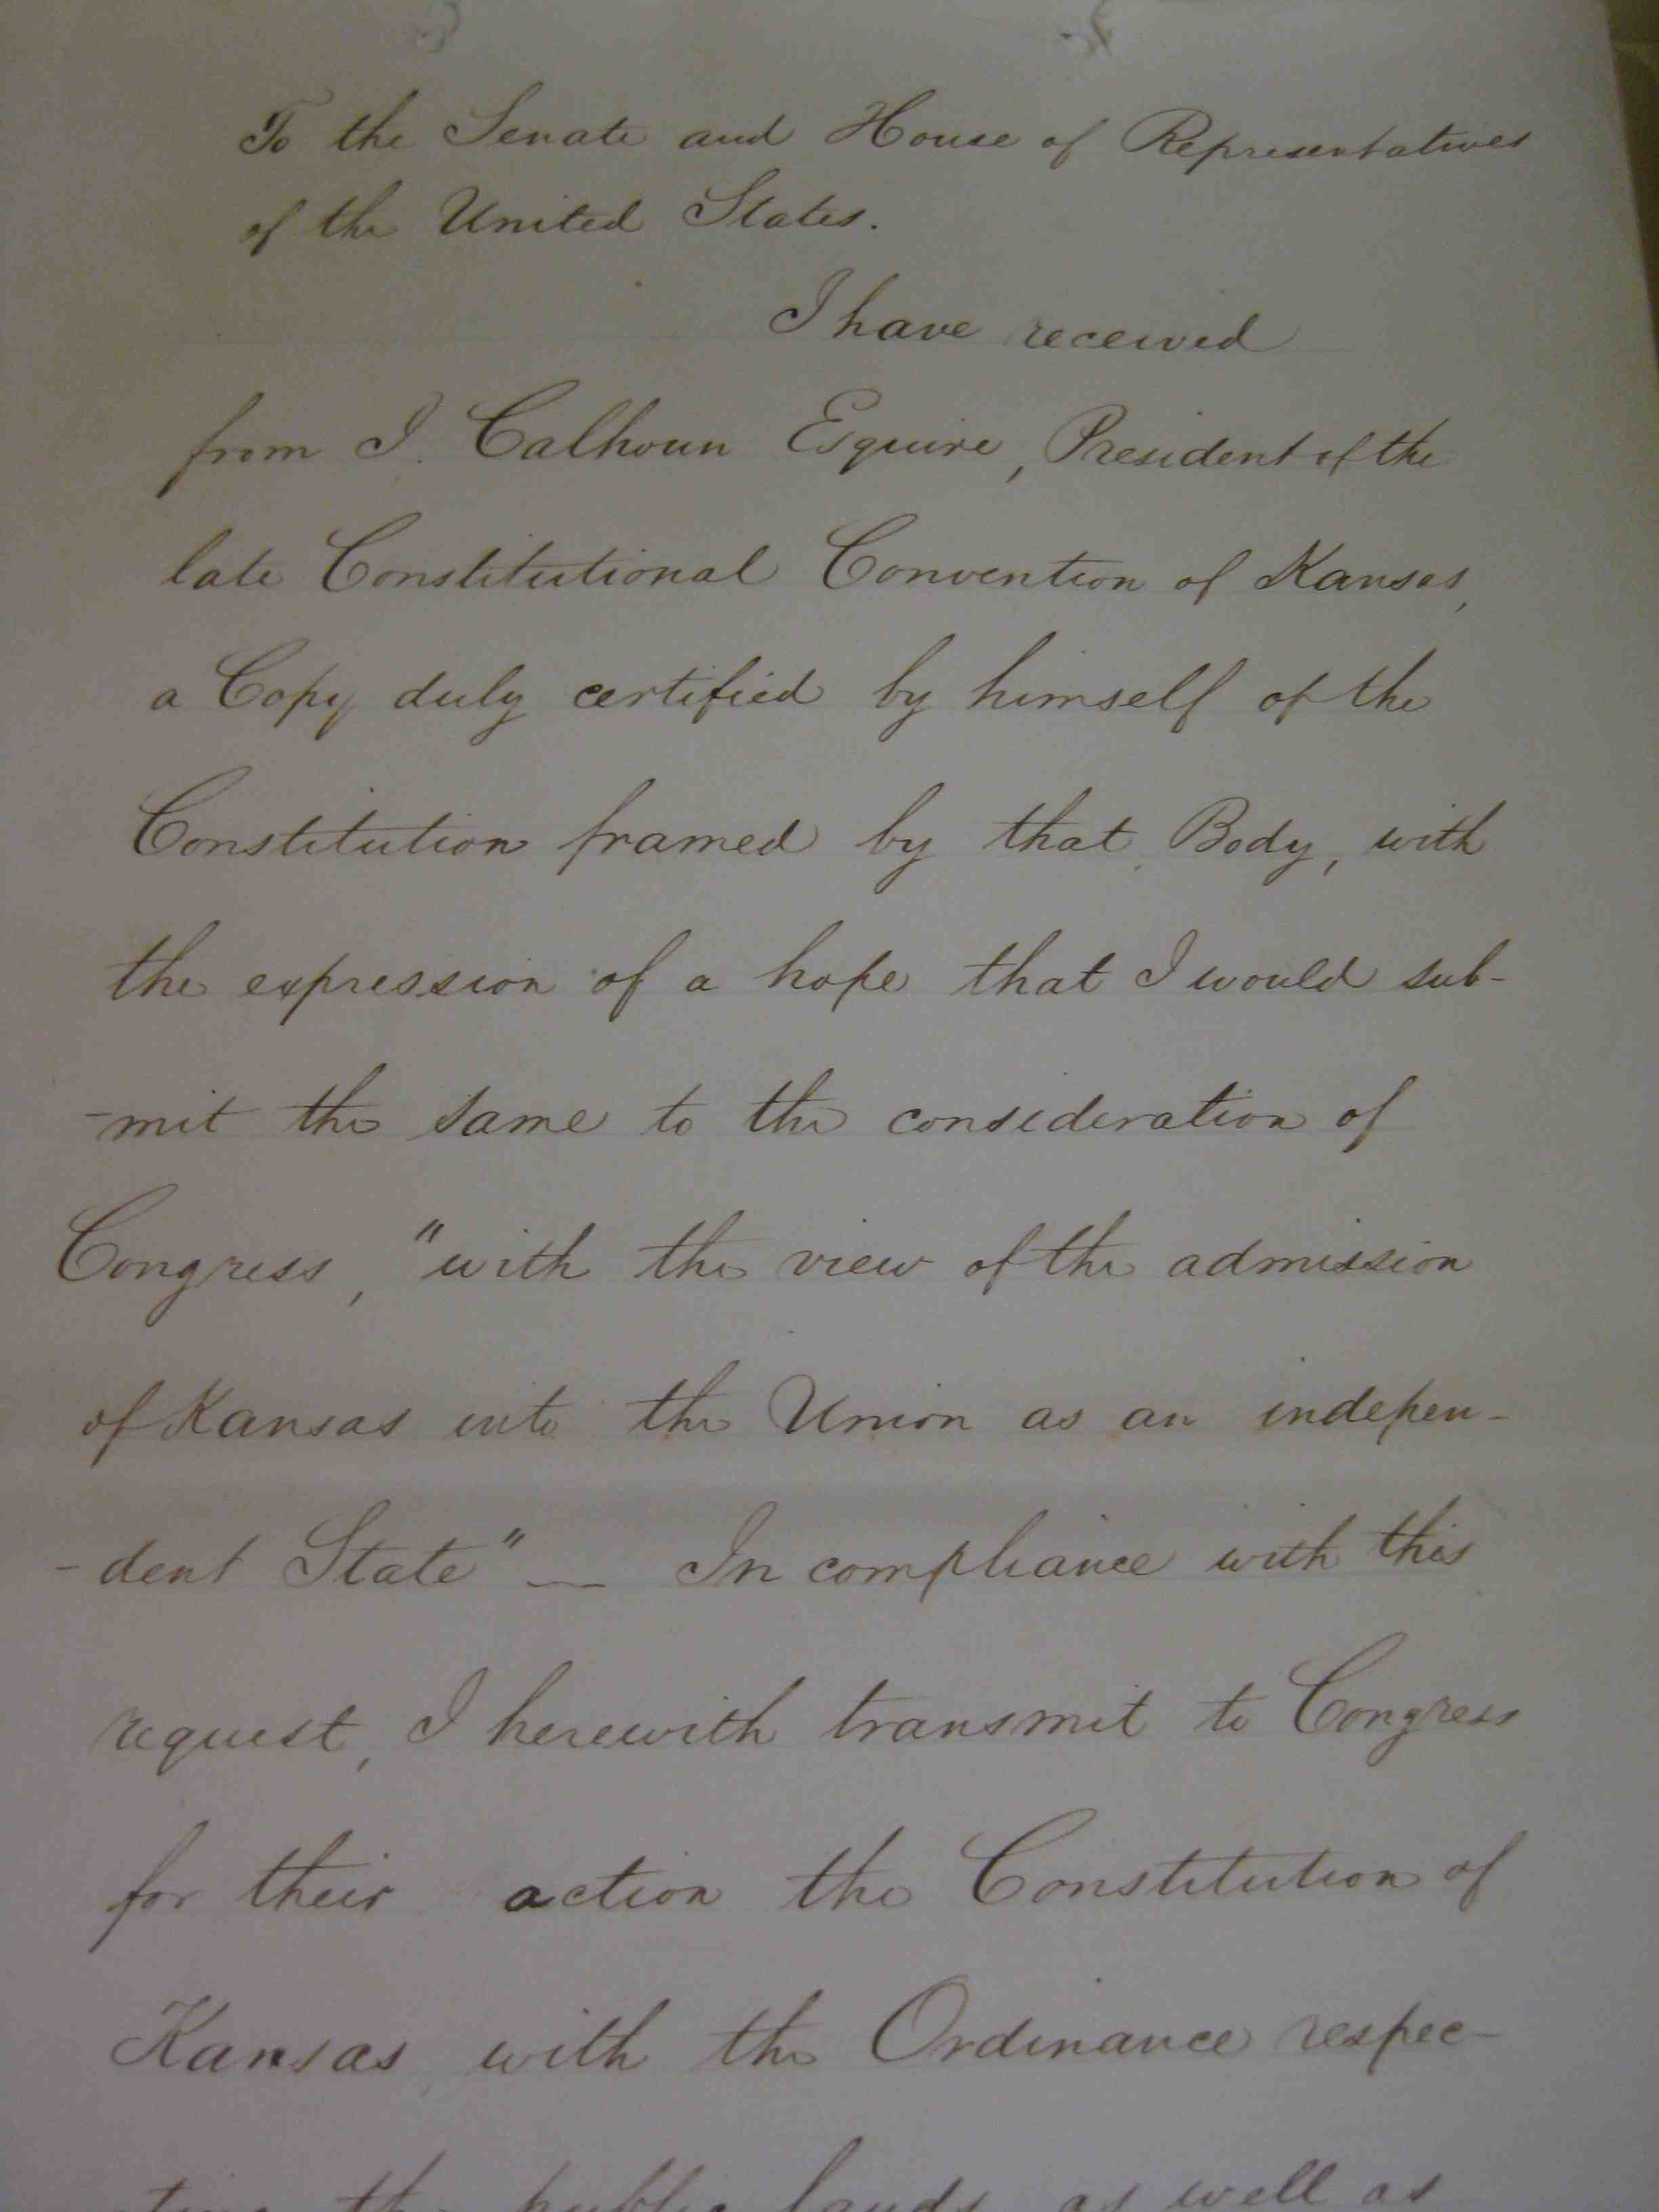 To the Senate and House of Representatives
of the United States.
I have received
from J. Calhoun Esquire, President of the
late Constitutional Convention of Kansas,
a Copy duly certified by himself of the
Constitution framed by that Body, with
the expression of a hope that I would sub-
-mit the same to the consideration of
Congress, "with the view of the admission
of Kansas into the Union as an indepen-
-dent State" — In compliance with this
request, I herewith transmit to Congress
for their action the Constitution of
Kansas, with the Ordinance respec-
-ting the public lands, as well as